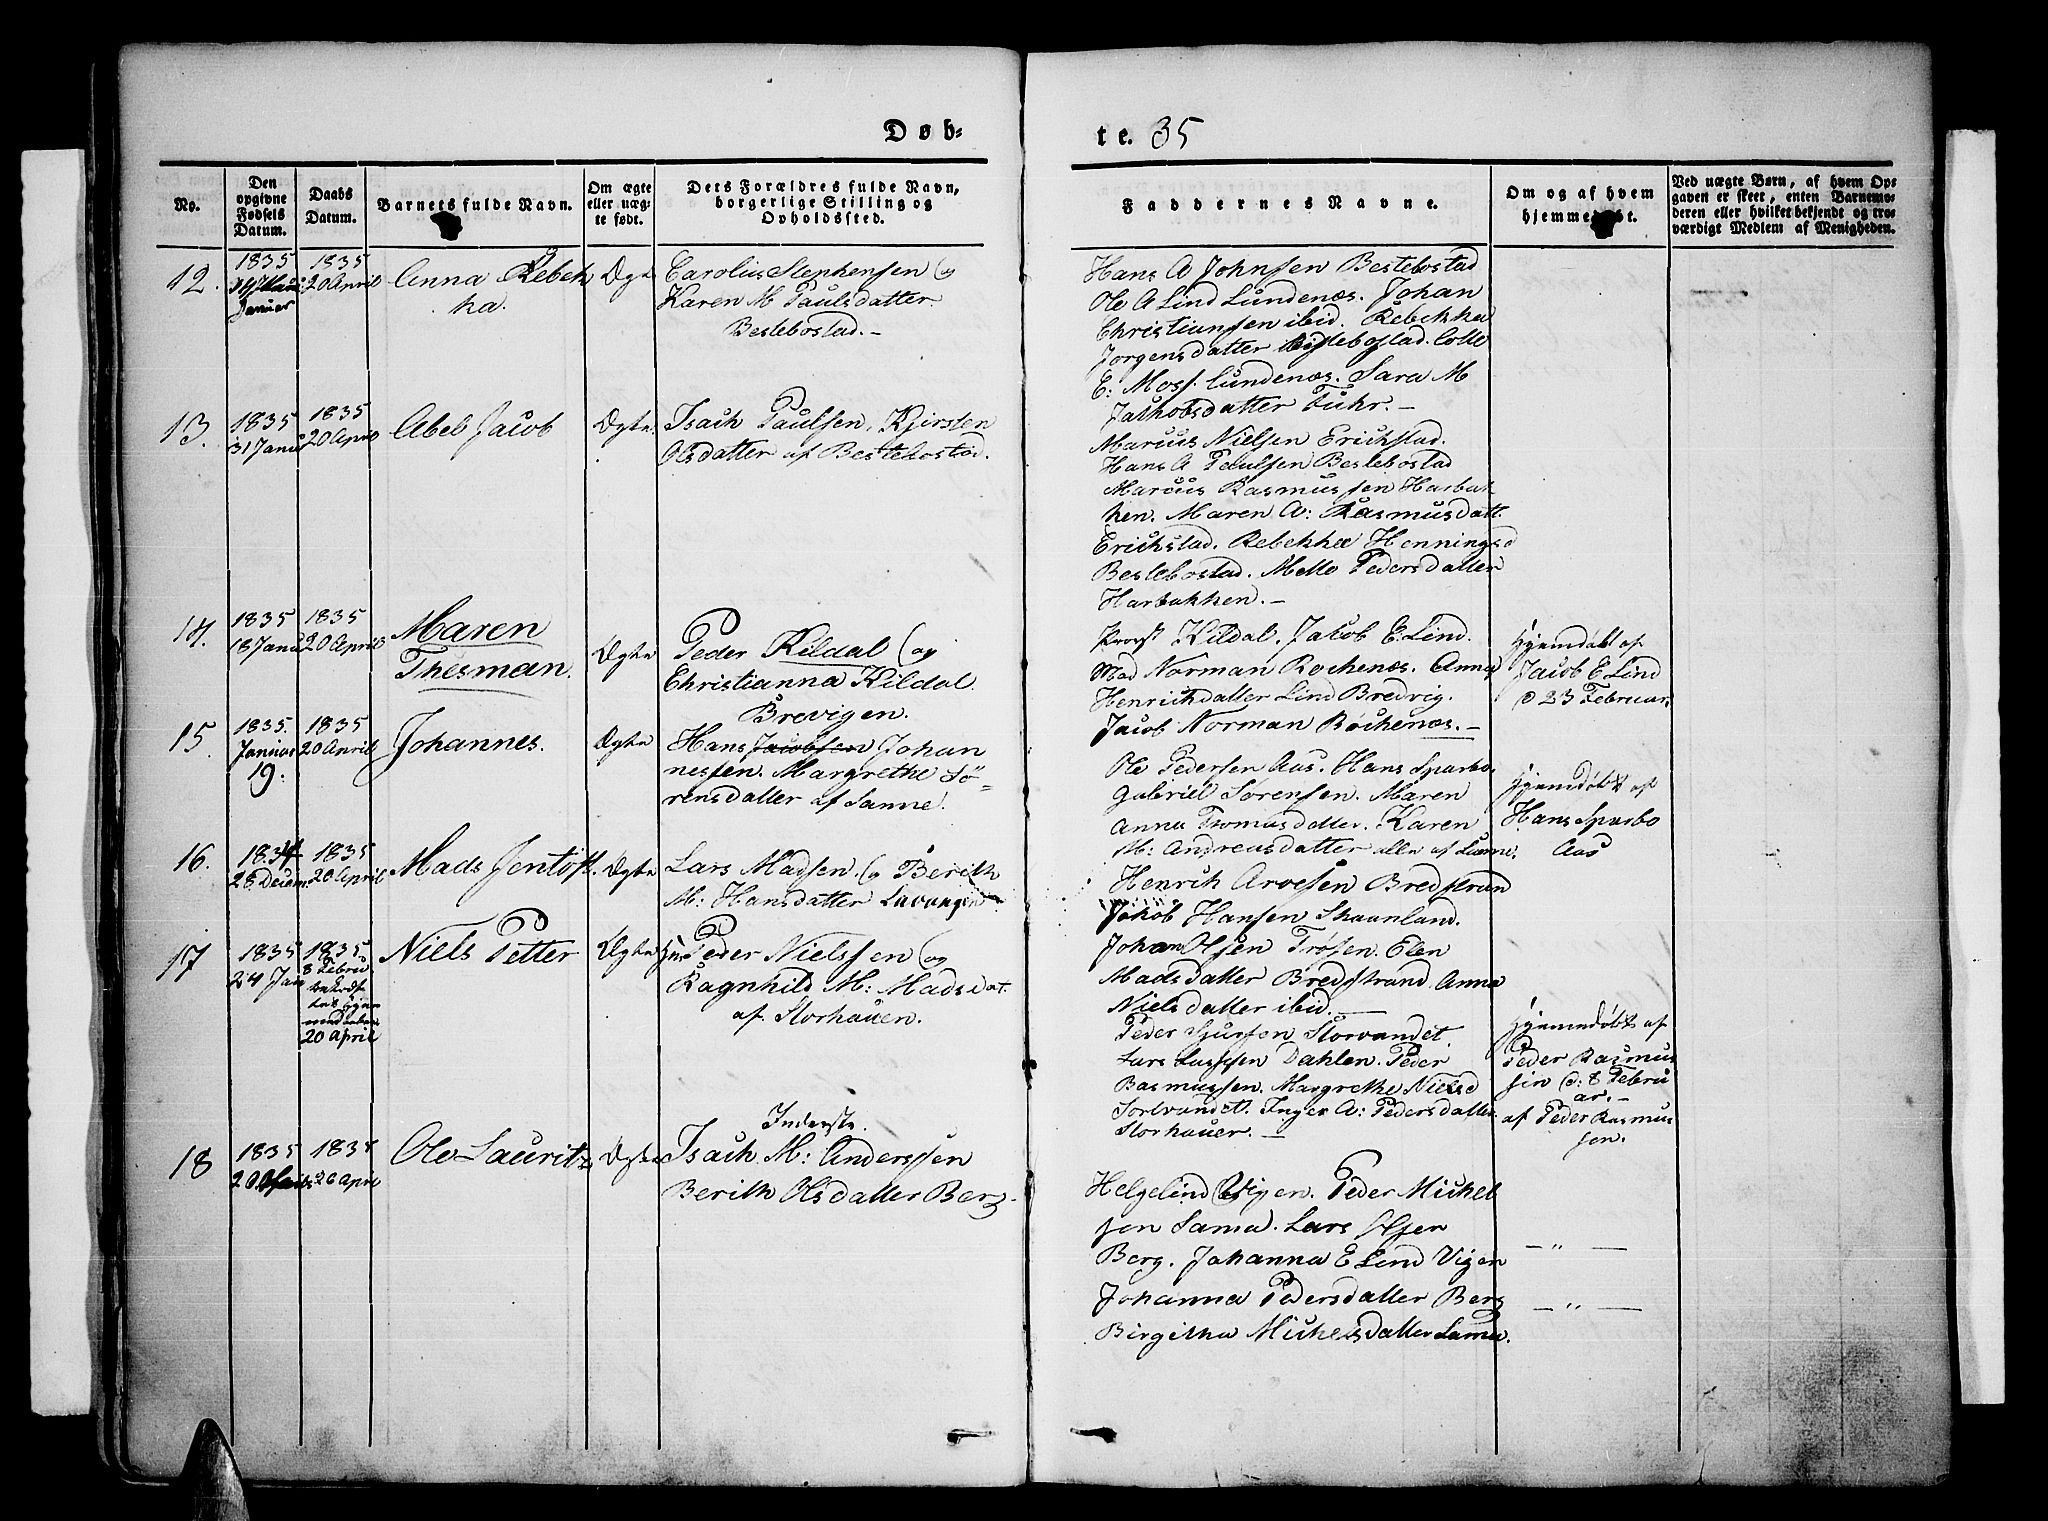 Døb-
te. 35
No.
Den opgivne Fødsels Datum.
Daabs Datum.
Barnets fulde Navn.
Om ægte eller uæg-
te født.
Dets Forældres fulde Navn,
borgerlige Stilling og
Opholdssted.
Faddernes Navne.
Om og af hvem
hjemmedøbt.
Ved uægte Børn, af hvem Op-
gaven er skeet, enten Barnemo-
deren eller hvilket bekjendt og tro-
værdigt Medlem af Menigheden.
12.
1835
Januar
1835
20 April
Anna Rebek
ka.
Ægte
Carolius Stephensen og
Karen M Paulsdatter
Beslebostad. -
Hans A Johnsen Beslebostad
Ole A Lind Lundenæs. Johan
Christiansen ibid. Rebekka
Jorgensdatter Beslebostad.
E: Moss. Lundenæs. Sara M
Jakhobsdatter Fuhr. -
13.
1835
31 Janu
1835
20 April
Abel Jacob
Ægte.
Isach Paulsen, Kjirsten
Olsdatter af Beslebostad.
Marcus Nielsen Erickstad.
Hans A Paulsen Beslebostad
Marcus Rasmussen Harbak
ken. Maren A: Rasmusdatt.
Erickstad. Rebekka Hennings d
Beslebostad. Mette Pedersdatter
Harbakken. -
14.
1835
18 Janu
1835
20 April
Maren
Thesman.
Ægte
Peder Kildal og
Christianna Kildal.
Brevigen.
Provst Kildal. Jakob E. Lind.
Mad Norman Rochenæs. Anna
Henrichdatter Lind Bredvig.
Jacob Norman Röchenæs. -
Hjemdöbt af
Jacob E Lind
d 23 Februar.
15.
1835.
Januar
19.
1835
20 April
Johannes.
Ægte
Hans Jacobsen Johan
nessen. Margrethe Sö-
rensdatter af Sanne.
Ole Pedersen Aas. Hans Sparbo.
Gabriel Sorensen. Maren
Anna Tomasdatter. Karen
M: Andreasdatter alle af
Hjemdöbt af
Hans Sparbo
Aas
16.
1834
28 Decem
1835
20 April
Mads Jentoft.
Ægte
Lars Madsen. og Berith
M: Hansdatter Lavangen
Henrich Arvesen Bredstrand
Jakob Hansen Skaanland.
Johan Olsen Trösen. Elen
Madsdatter Bredstrand. Anna
Nielsdatter ibid. -
17
1835
24 Jan
1835
8 Febru
20 April
Niels Petter
Ægte
Peder Nielssen og
Ragnhild M: Madsdat.
af Storhauen.
Peder Storvandet.
Lars Larssen Dahlen. Peder
Rasmussen. Margrethe Niels d
Storvandet. Inger A: Pedersdatter
Storhauer. -
Hjemmdöbt af
Peder Rasmus
sen d: 8 Febru
ar. -
af Peder Rasmus
sen.
18
1835
20
1835
26 April
Ole Lauritz
Ægte
Inderste.
Isach M: Anderssen
Berith Olsdatter Berg -
Helgelind Vigen. Peder Mickel
sen Sama. Lars Olsen
Berg. Johanna E Lind Vigen
Johanna Pedersdatter Berg
Birgitha Mickelsdatter Sama.
- " -
- " -